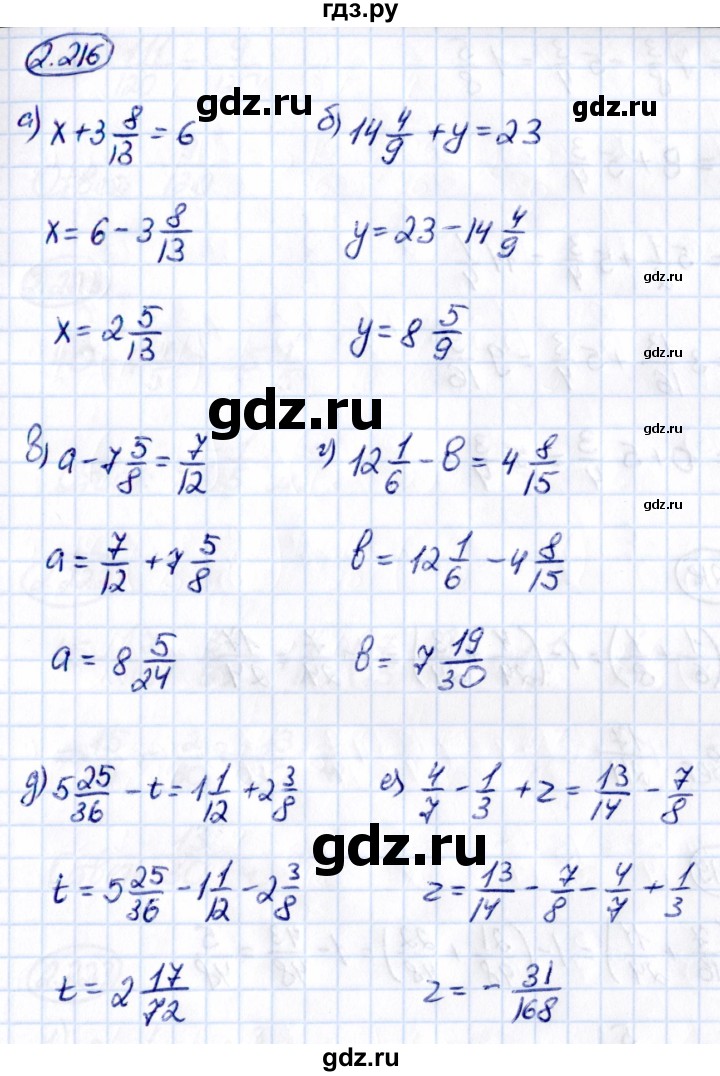 гдз.ру
2.216
а) x + 3 8/13 = 6 б) 14 4/9 + y = 23
gdz.ru gdz.ru
x = 6 - 3 8/13 y = 23 - 14 4/9
gdz.ru
x = 2 5/13 y = 8 5/9
gdz.ru
gdz.ru
в) a - 7 5/8 = 7/12 г) 12 1/6 - в = 4 8/15
gdz.ru
a = 7/12 + 7 5/8 в = 12 1/6 - 4 8/15
a = 8 5/24 в = 7 19/30
д) 5 25/36 - t = 1 1/12 + 2 3/8 е) 4/7 - 1/3 + z = 13/14 - 7/8
gdz.ru
t = 5 25/36 - 1 1/12 - 2 3/8 z = 13/14 - 7/8 - 4/7 + 1/3
t = 2 17/72 z = - 31/168
gdz.ru